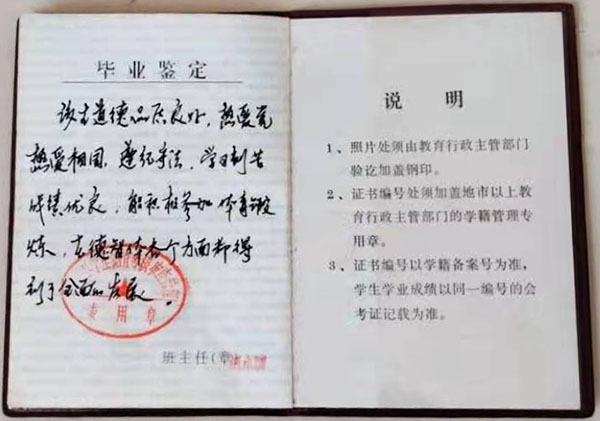 毕业鉴定
该生道德品质良好，热爱党
热爱祖国，遵纪守法，学习刻苦
成绩优良，能积极参加体育锻
炼，在德智体各个方面都得
到了全面的发展。
专用章
班主任(章)
说明
1、照片处须由教育行政主管部门
验讫加盖钢印。
2、证书编号处须加盖地市以上教
育行政主管部门的学籍管理专
用章。
3、证书编号以学籍备案号为准，
学生学业成绩以同一编号的会
考证记载为准。